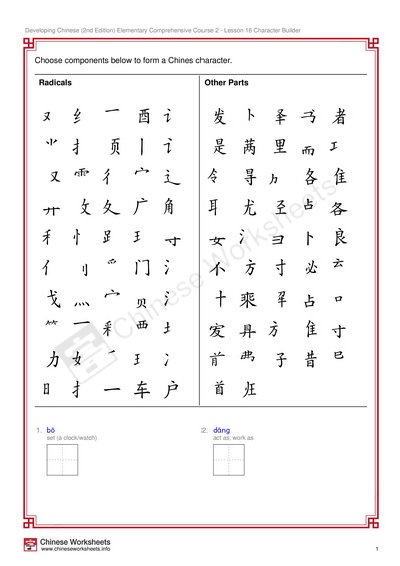 Developing Chinese (2nd Edition) Elementary Comprehensive Course 2 - Lesson 16 Character Builder
Choose components below to form a Chines character.
Radicals
Other Parts
又 纟 乛 酉 讠
发 卜 圣 者
扌 页 丨 讠
是 里 而 工
又 彳 宀 辶
令 寻 各 隹
廾 攵 夂 广 角
耳 尤 占 各
禾 忄 王 寸
女 氵 彐 卜 良
亻 刂 爫 门 氵
不 方 寸 必 云
戈 灬 宀 贝 氵
十 乘 占 口
冖 西 土
方 隹 寸
力 女 王 氵
前 子 昔 巳
日 扌 一 车 户
首
1. bō
set (a clock/watch)
2. dāng
act as; work as
Chinese Worksheets
Chinese Worksheets
www.chineseworksheets.info
1